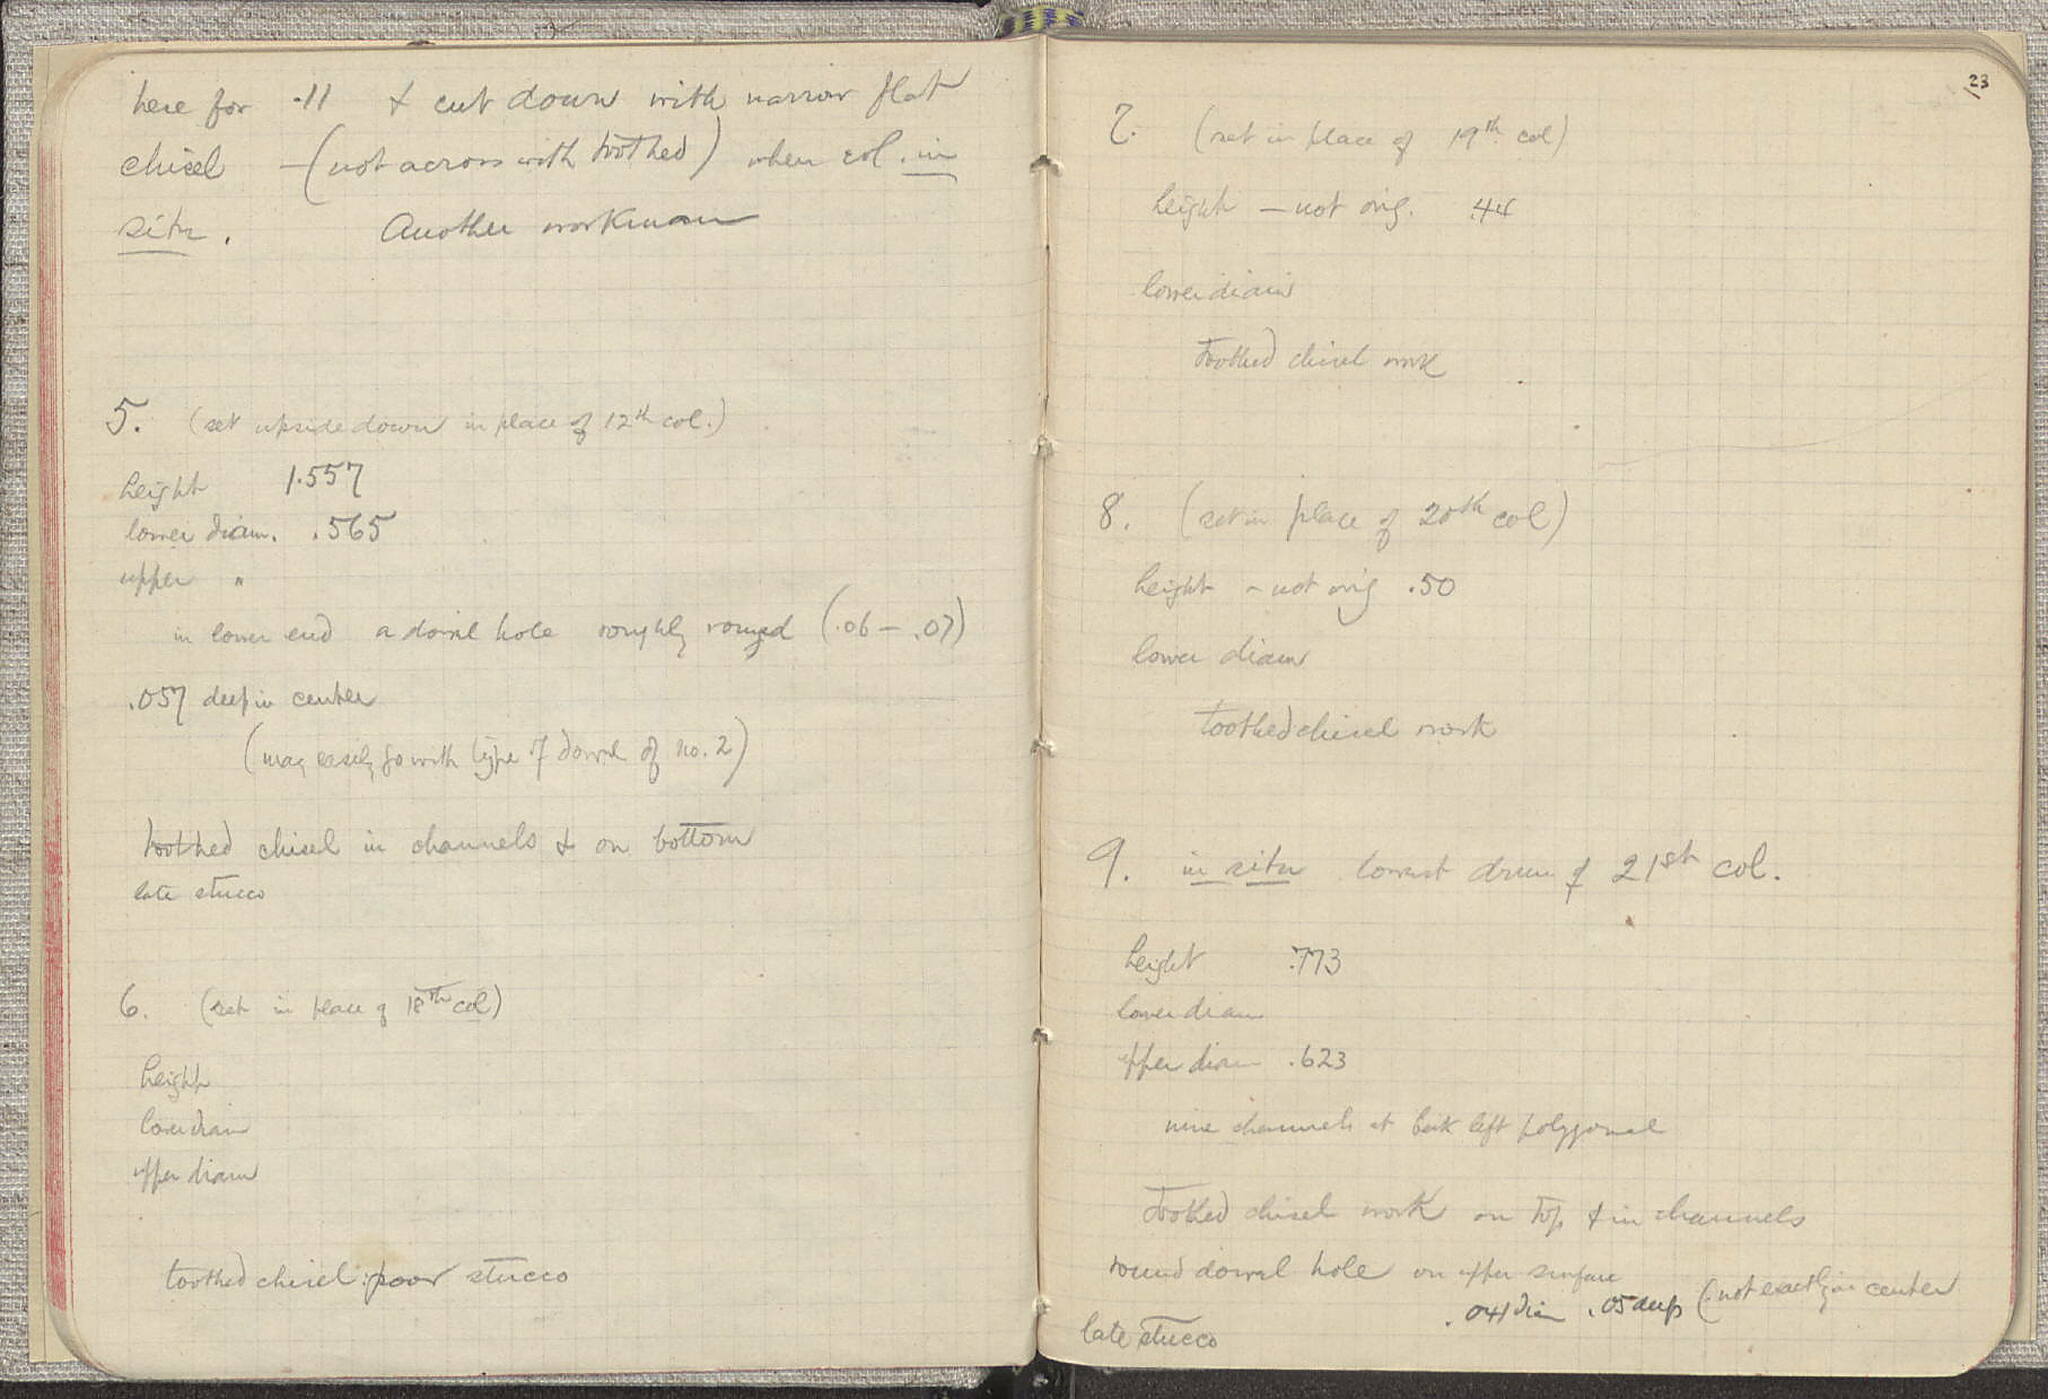 here for .11 & cut down with narrow flat
chisel — (not across with toothed) when col. in
situ. Another workman
5. (set upside down in place of 12th col.)
height 1.557
lower diam. .565
upper "
in lower end a dowel hole roughly round (.06 — .07)
.057 deep in center
(may easily go with type of dowel of no. 2)
toothed chisel in channels & on bottom
late stucco
6. (set in place of 18th col)
height
lower diam
upper diam
toothed chisel: poor stucco
23
7. (set in place of 19th col)
height — not orig. .44
lower diam
toothed chisel work
8. (set in place of 20th col)
height - not orig .50
lower diam
toothed chisel work
9. in situ lowest drum of 21st col.
height .773
lower diam
upper diam .623
nine channels at back left polygonal
toothed chisel work on top & in channels
round dowel hole on upper surface
.041 diam .05 deep (not exactly in center
late stucco